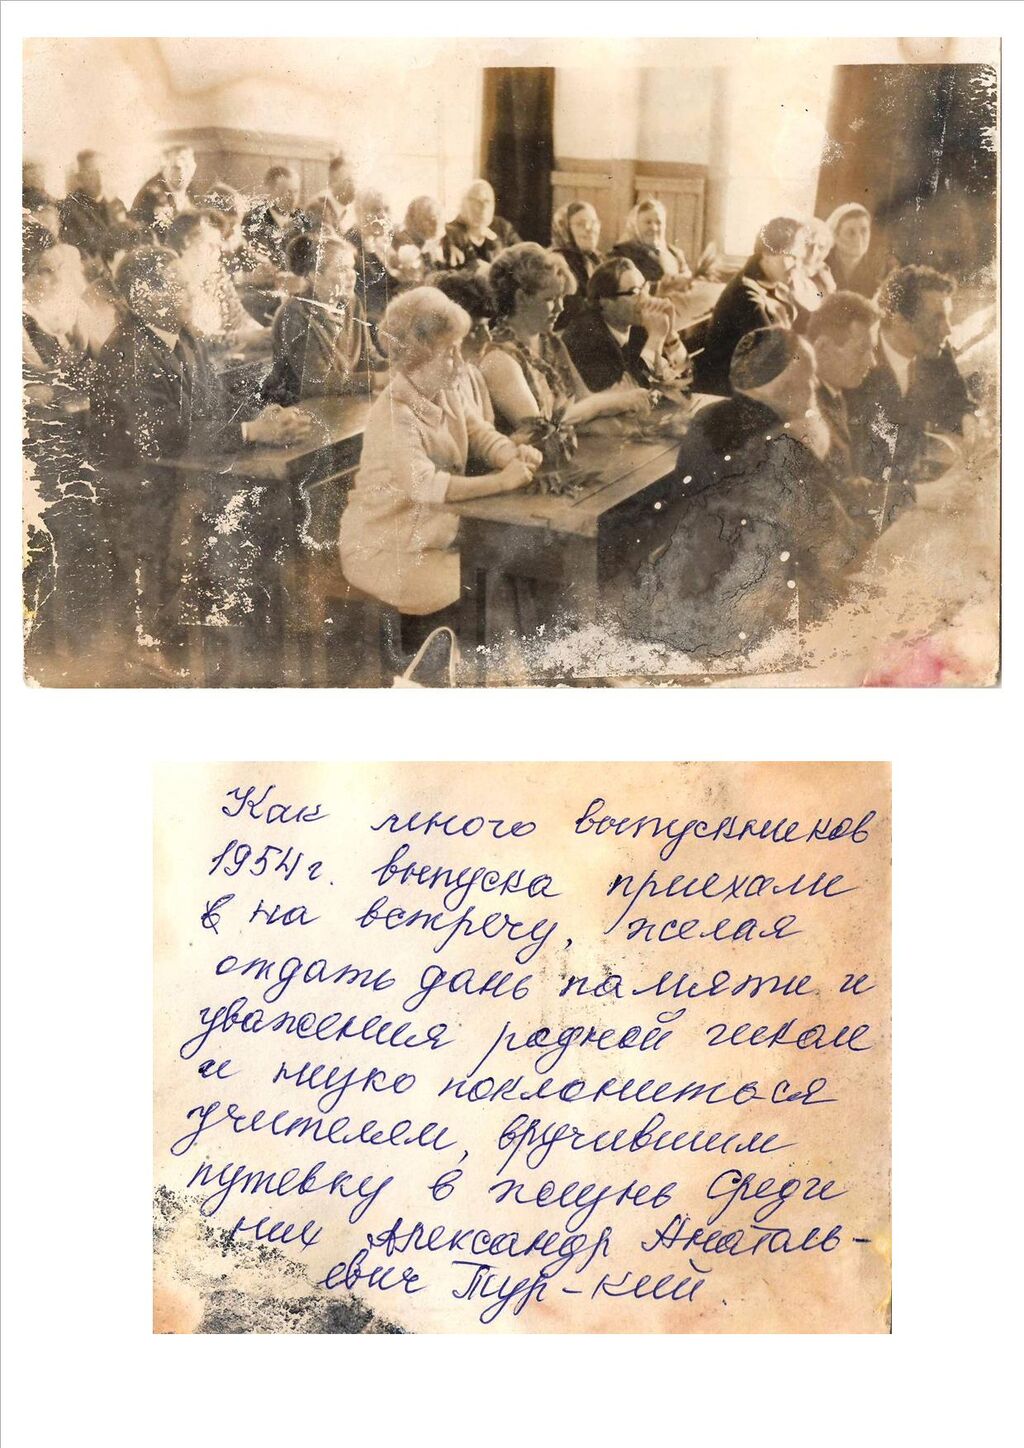 Как много выпускников
1954 г. выпуска приехали
на встречу, желая
отдать дань памяти и
уважения родной школе
и низко поклониться
учителям, вручившим
путевку в жизнь Среди
них Александр Анатоль-
евич Тур-кий.